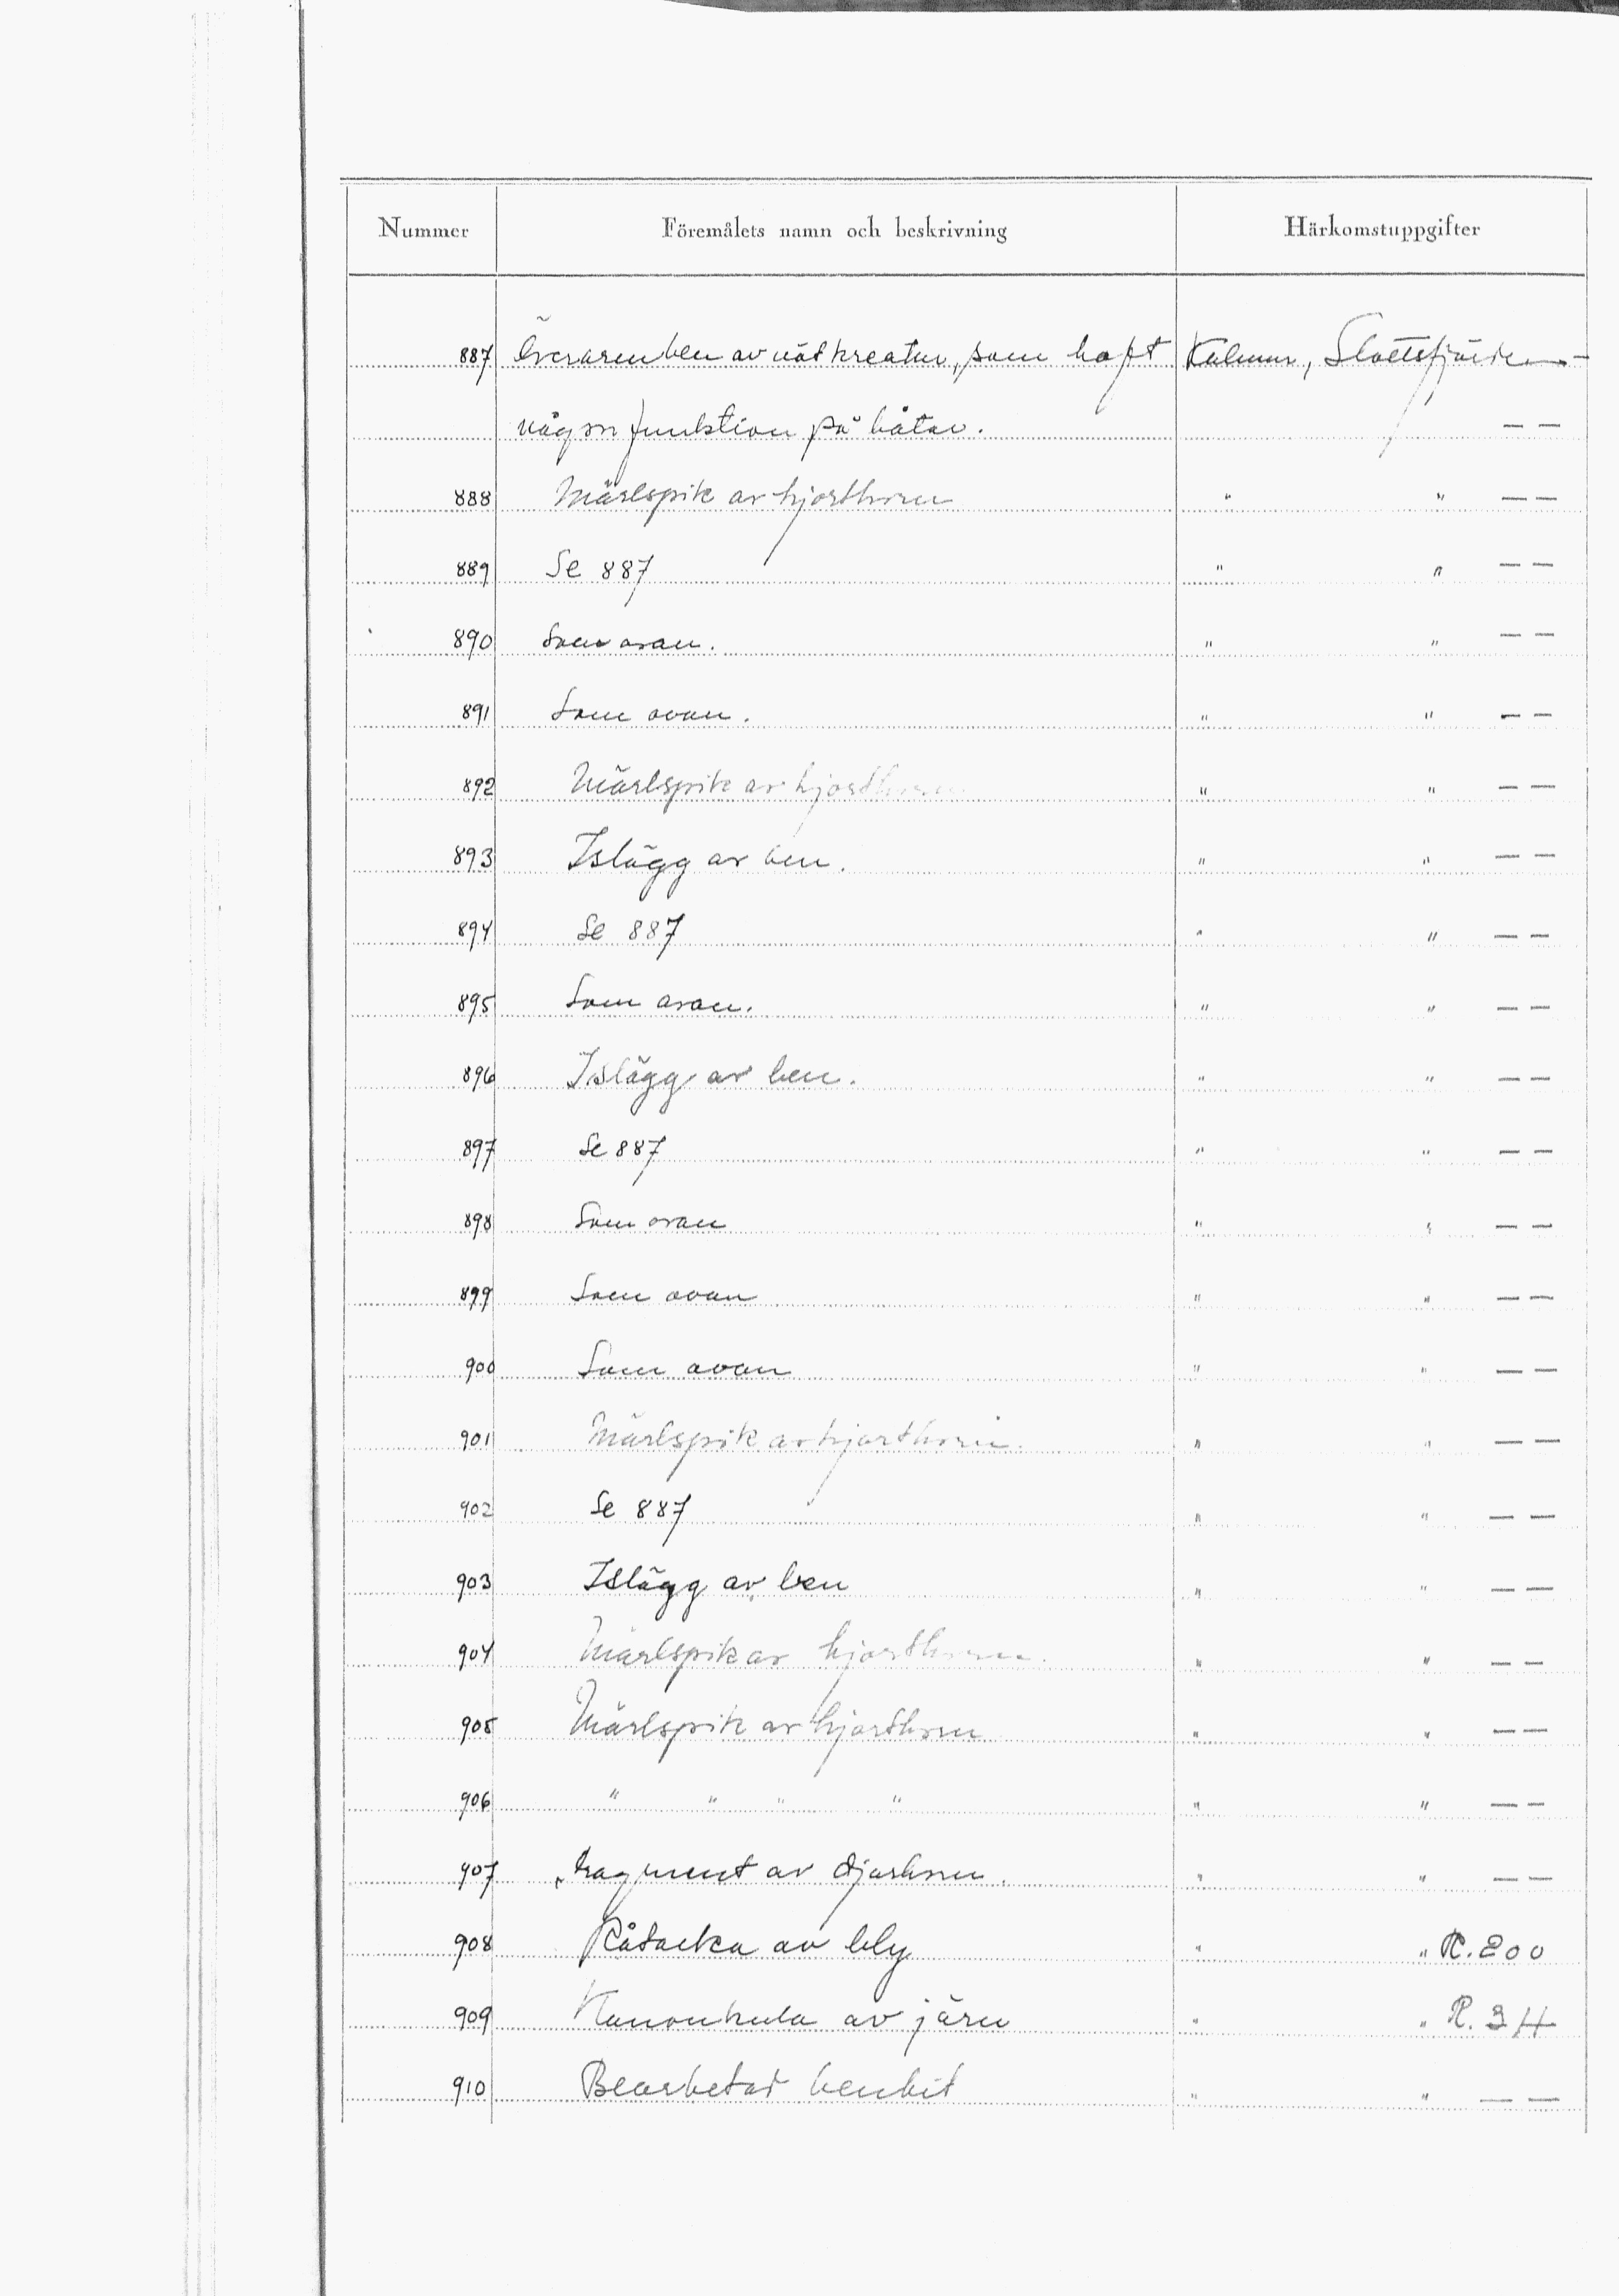 Nummer Föremålets namn och beskrivning Härkomstuppgifter
887 Överarmben av nötkreatur, som haft Kalmar, Slottsfjärden —
någon funktion på båtar. — —
888 Märlspik av hjorthorn " " — —
889 Se 887 " " — —
890 Som ovan. " " — —
891 Som ovan. " " — —
892 Märlspik av hjorthorn " " — —
893 Islägg av ben. " " — —
894 Se 887 " " — —
895 Som ovan. " " — —
896 Islägg av ben. " " — —
897 Se 887 " " — —
898 Som ovan " " — —
899 Som ovan " " — —
900 Som ovan " " — —
901 Märlspik av hjorthorn. " " — —
902 Se 887 " " — —
903 Islägg av ben " " — —
904 Märlspik av hjorthorn. " " — —
905 Märlspik av hjorthorn " " — —
906 " " " " " " — —
907 Fragment av djurhorn. " " — —
908 Råtacka av bly " " R. 200
909 Kanonkula av järn " " R. 34
910 Bearbetad benbit " " — —